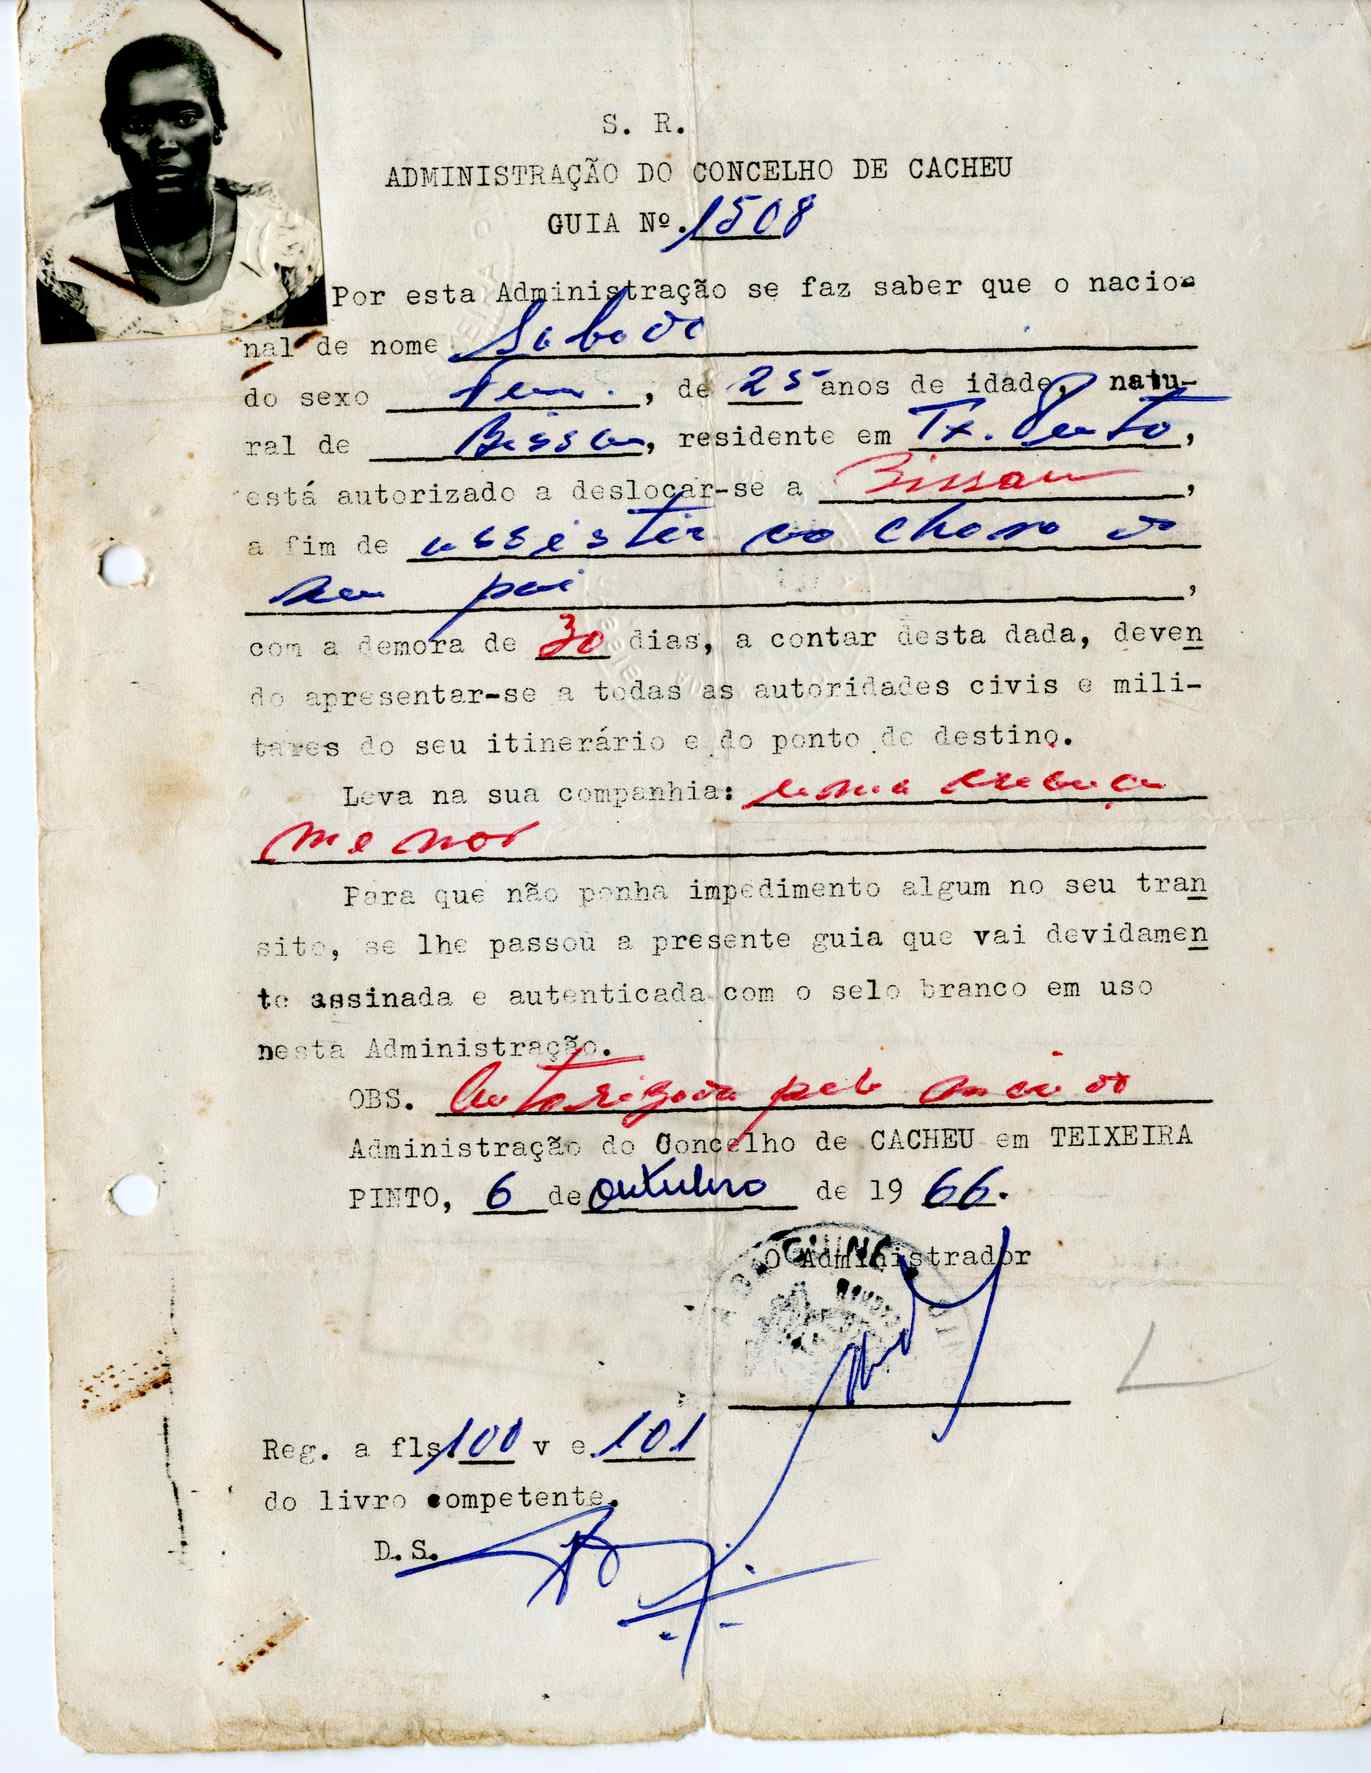 S. R.
ADMINISTRAÇÃO DO CONCELHO DE CACHEU
GUIA Nº. 1508
Por esta Administração se faz saber que o nacio-
nal de nome Sabado
do sexo Fem., de 25 anos de idade, natu-
ral de Bissau, residente em Tx. Pinto,
está autorizado a deslocar-se a Bissau,
a fim de assistir ao choro do
seu pai,
com a demora de 30 dias, a contar desta dada, deven
do apresentar-se a todas as autoridades civis e mili-
tares do seu itinerário e do ponto de destino.
Leva na sua companhia: uma criança
menor
Para que não ponha impedimento algum no seu tran
sito, se lhe passou a presente guia que vai devidamen
te assinada e autenticada com o selo branco em uso
nesta Administração.
OBS. Autorizada pelo
Administração do Concelho de CACHEU em TEIXEIRA
PINTO, 6 de outubro de 19 66.
O Administrador
Reg. a fls. 100 v e 101
do livro competente.
D.S.